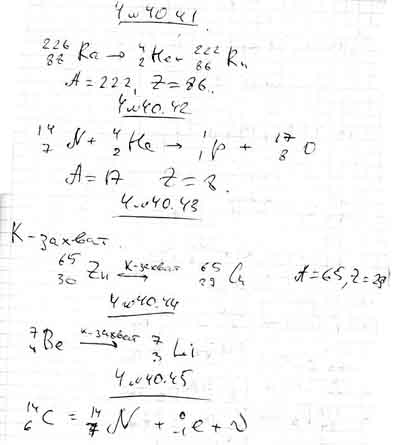 Ч и 40.41
²²⁶₈₈Ra → ⁴₂He + ²²²₈₆Rn
A = 222, Z = 86.
Ч и 40.42
¹⁴₇N + ⁴₂He → ¹₁p + ¹⁷₈O
A = 17 Z = 8.
Ч и 40.43
К-захват.
⁶⁵₃₀Zn К-захват → ⁶⁵₂₉Cu A = 65, Z = 29
Ч и 40.44
⁷₄Be К-захват → ⁷₃Li
Ч и 40.45
¹⁴₆C = ¹⁴₇N + ⁰₋₁e + ν